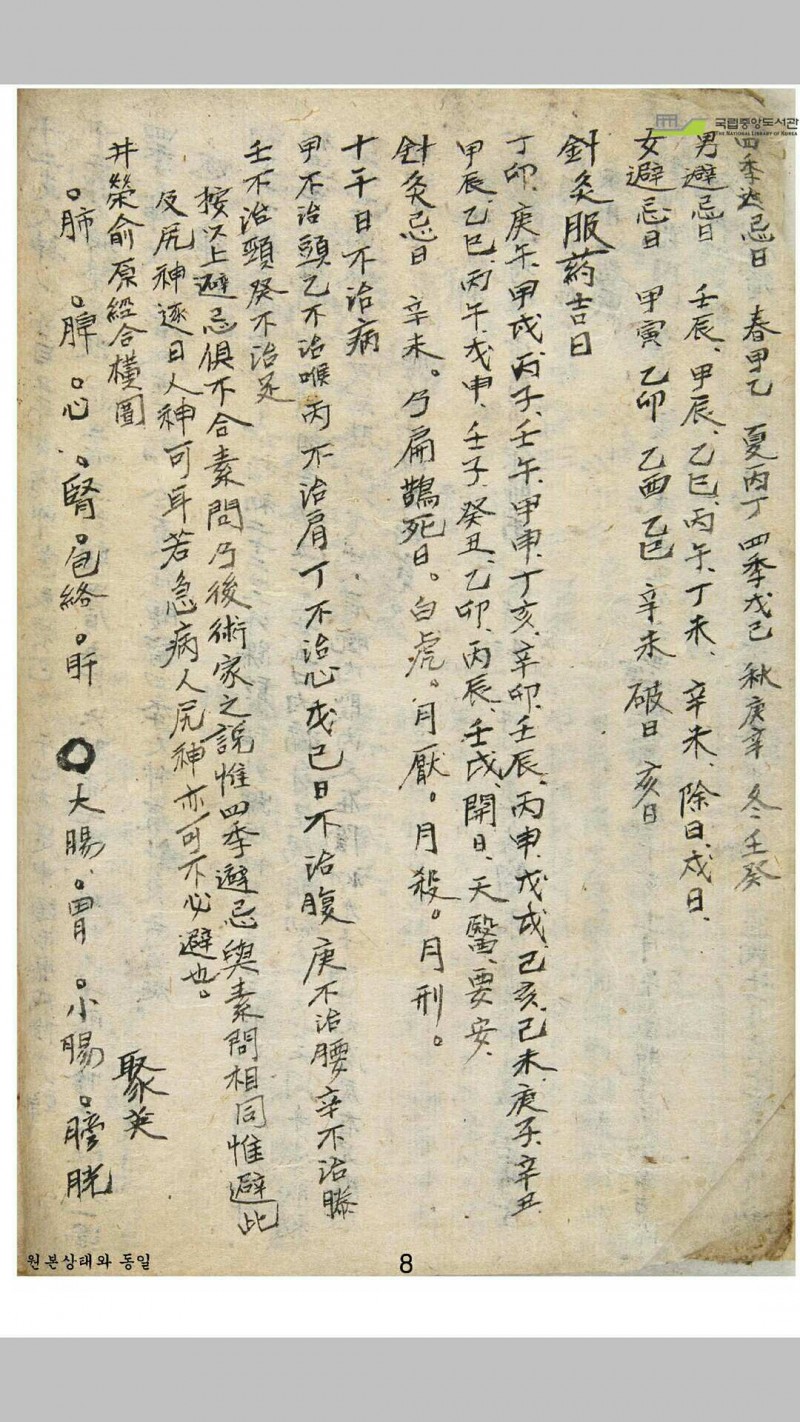 四季避忌日 春甲乙 夏丙丁 四季戊己 秋庚辛 冬壬癸
男避忌日 壬辰、甲辰、乙巳、丙午、丁未、辛未、除日、戌日、
女避忌日 甲寅 乙卯 乙酉 乙巳 辛未 破日 亥日
針灸服药吉日
丁卯、庚午、甲戌、丙子、壬午、甲申、丁亥、辛卯、壬辰、丙申、戊戌、己亥、己未、庚子、辛丑、
甲辰、乙巳、丙午、戊申、壬子、癸丑、乙卯、丙辰、壬戌、開日、天醫、要安、
針灸忌日 辛未。乃扁鵲死日。白虎。月厭。月殺。月刑。
十干日不治病
甲不治頭乙不治喉丙不治肩丁不治心戊己日不治腹庚不治腰辛不治膝
壬不治頸癸不治足
按以上避忌俱不合素問乃後術家之說惟四季避忌與素問相同惟避此
及尻神逐日人神可耳若急病人尻神亦可不必避也。 聚英
井榮俞原經合橫圖
。肺 。脾 。心 。腎 。包絡 。肝 〇大腸 。胃 。小腸 。膀胱
국립중앙도서관
THE NATIONAL LIBRARY OF KOREA
원본상태와 동일
8